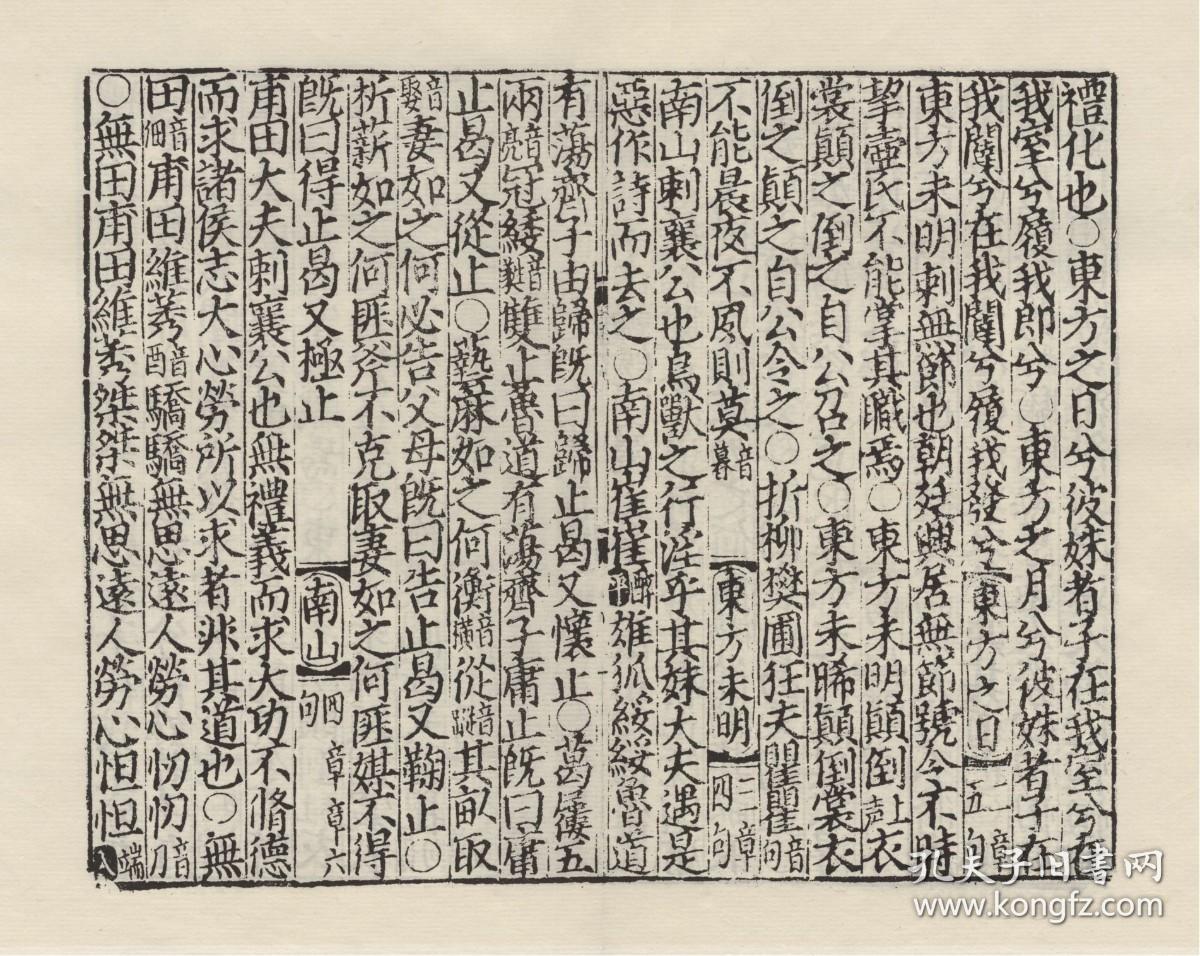 禮化也○東方之日兮彼姝者子在我室兮在
我室兮履我即兮○東方之月兮彼姝者子在
我闥兮在我闥兮履我發兮東方之日二章章五句
東方未明刺無節也朝廷興居無節號令不時
挈壷氏不能掌其職焉○東方未明顛倒上声衣
裳顛之倒之自公召之○東方未晞顛倒裳衣
倒之顛之自公令之○折柳樊圃狂夫瞿瞿音句
不能晨夜不夙則莫音暮東方未明三章章四句
南山刺襄公也鳥獸之行淫乎其妹大夫遇是
惡作詩而去之○南山崔崔雄狐綏綏魯道
有蕩齊子由歸既曰歸止曷又懷止○葛屨五
兩音亮冠緌音雖雙止魯道有蕩齊子庸止既曰庸
止曷又從止○蓺麻如之何衡音橫從音蹤其畝取
音娶妻如之何必告父母既曰告止曷又鞠止○
析薪如之何匪斧不克取妻如之何匪媒不得
既曰得止曷又極止南山四章章六句
甫田大夫刺襄公也無禮義而求大功不脩德
而求諸侯志大心勞所以求者非其道也○無
田音佃甫田維莠音酉驕驕無思遠人勞心忉忉音刀
○無田甫田維莠桀桀無思遠人勞心怛怛端八
孔夫子旧书网
www.kongfz.com